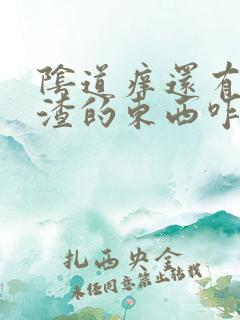 陰道痒還有
渣的東西咋
扎西央金
未经同意禁止转载